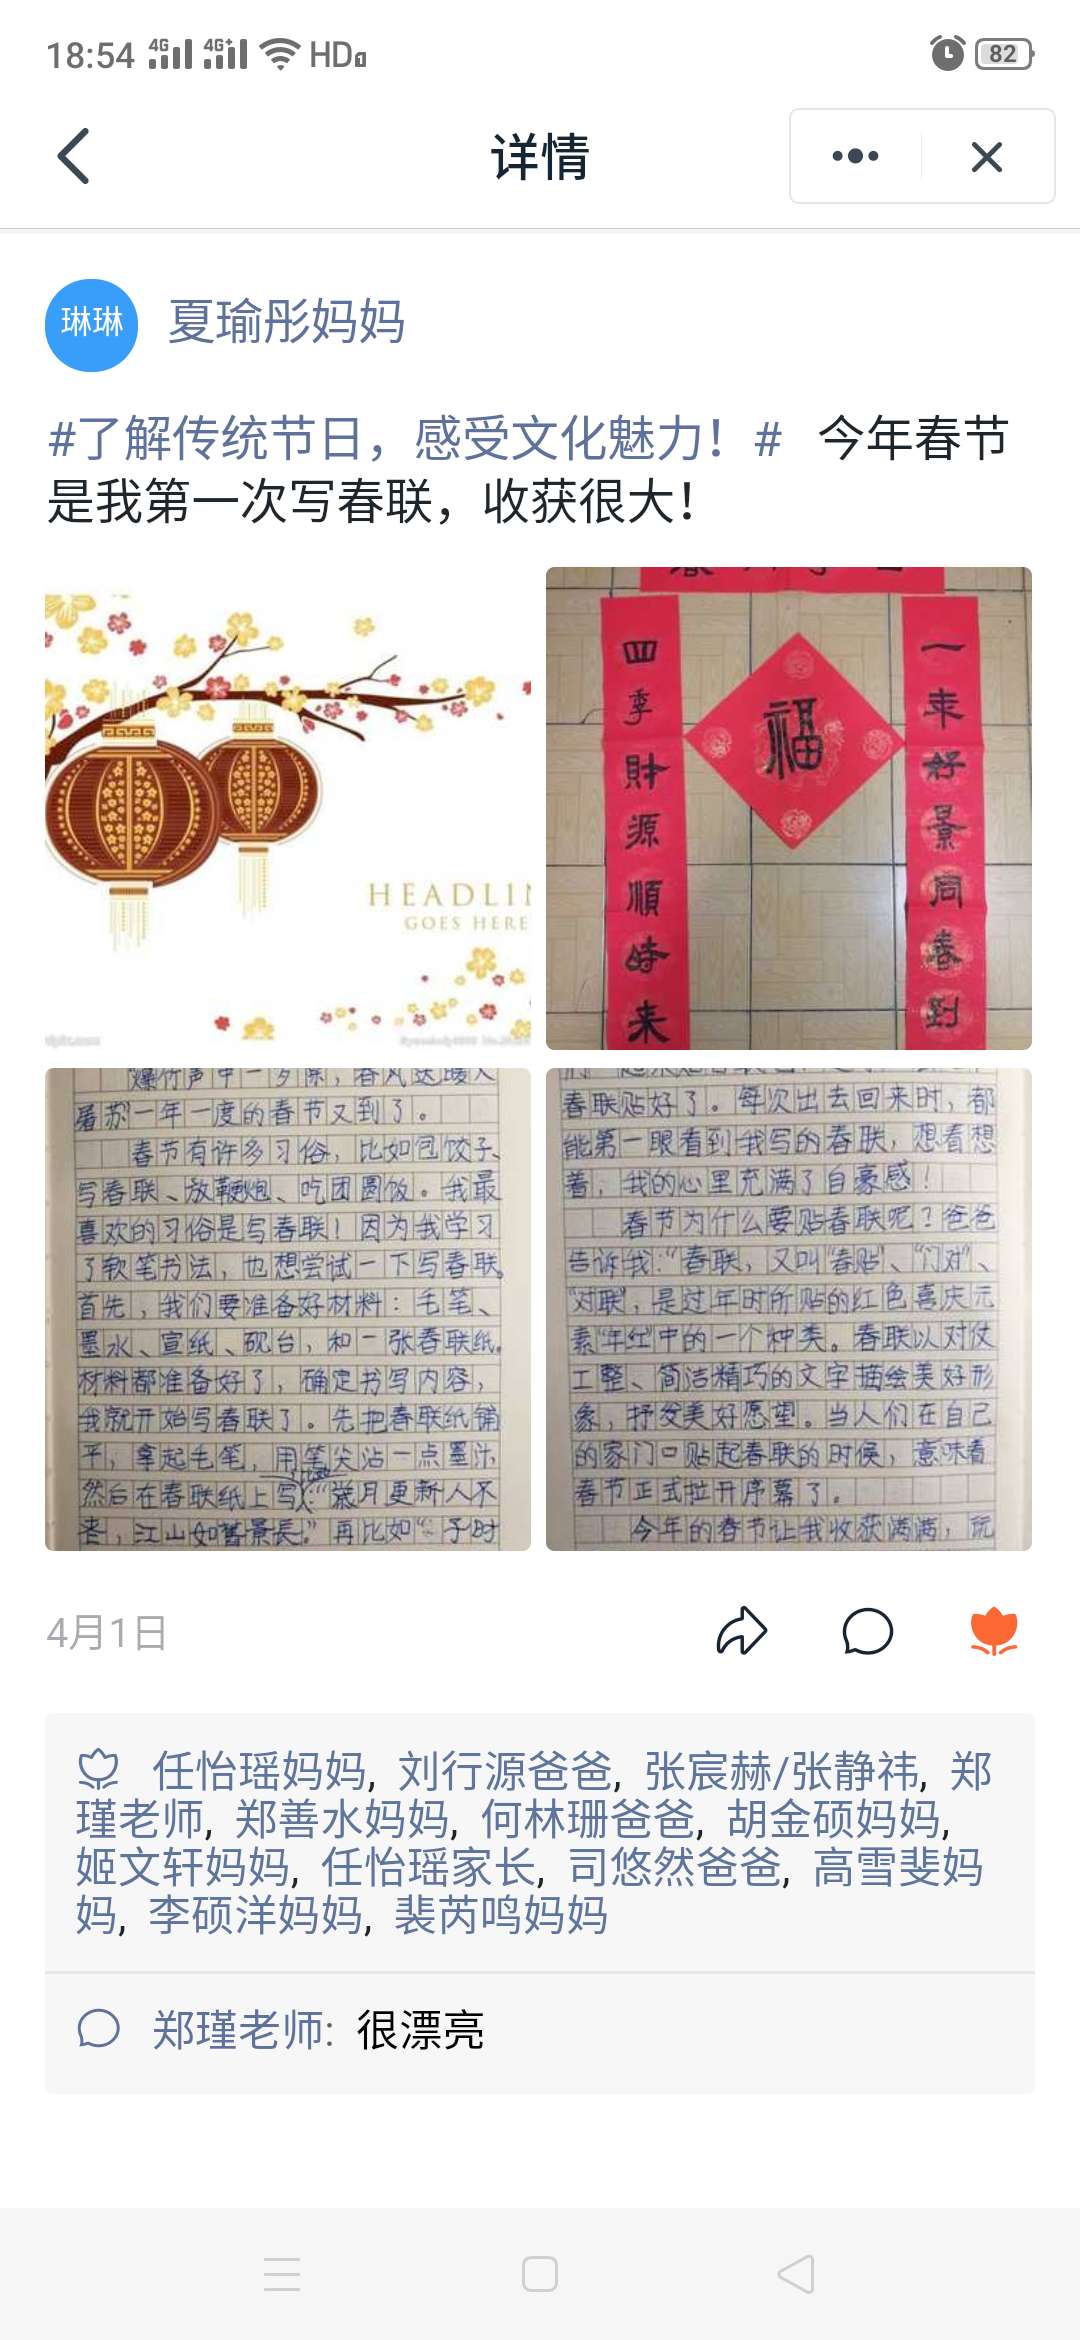 18:54 4G 4G+ HD 1 82
详情
琳琳 夏瑜彤妈妈
#了解传统节日，感受文化魅力！# 今年春节
是我第一次写春联，收获很大！
HEADLIN
GOES HERE
四季财源順時来
福
一来好景同春到
爆竹声中一岁除，春风送暖入
屠苏一年一度的春节又到了。
春节有许多习俗，比如包饺子、
写春联、放鞭炮、吃团圆饭。我最
喜欢的习俗是写春联！因为我学习
了软笔书法，也想尝试一下写春联。
首先，我们要准备好材料：毛笔、
墨水、宣纸、砚台，和一张春联纸。
材料都准备好了，确定书写内容，
我就开始写春联了。先把春联纸铺
平，拿起毛笔，用笔尖沾一点墨汁
然后在春联纸上写：“歲月更新人不
老，江山如舊景長。”再比如“子时
春联贴好了。每次出去回来时，都
能第一眼看到我写的春联，想着想
着，我的心里充满了自豪感！
春节为什么要贴春联呢？爸爸
告诉我：“春联，又叫“春贴”、“门对”、
“对联”，是过年时所贴的红色喜庆元
素“年红”中的一个种类。春联以对仗
工整、简洁精巧的文字描绘美好形
象，抒发美好愿望。当人们在自己
的家门口贴起春联的时候，意味着
春节正式拉开序幕了。
今年的春节让我收获满满，玩
4月1日
任怡瑶妈妈, 刘行源爸爸, 张宸赫/张静祎, 郑
瑾老师, 郑善水妈妈, 何林珊爸爸, 胡金硕妈妈,
姬文轩妈妈, 任怡瑶家长, 司悠然爸爸, 高雪斐妈
妈, 李硕洋妈妈, 裴芮鸣妈妈
郑瑾老师: 很漂亮